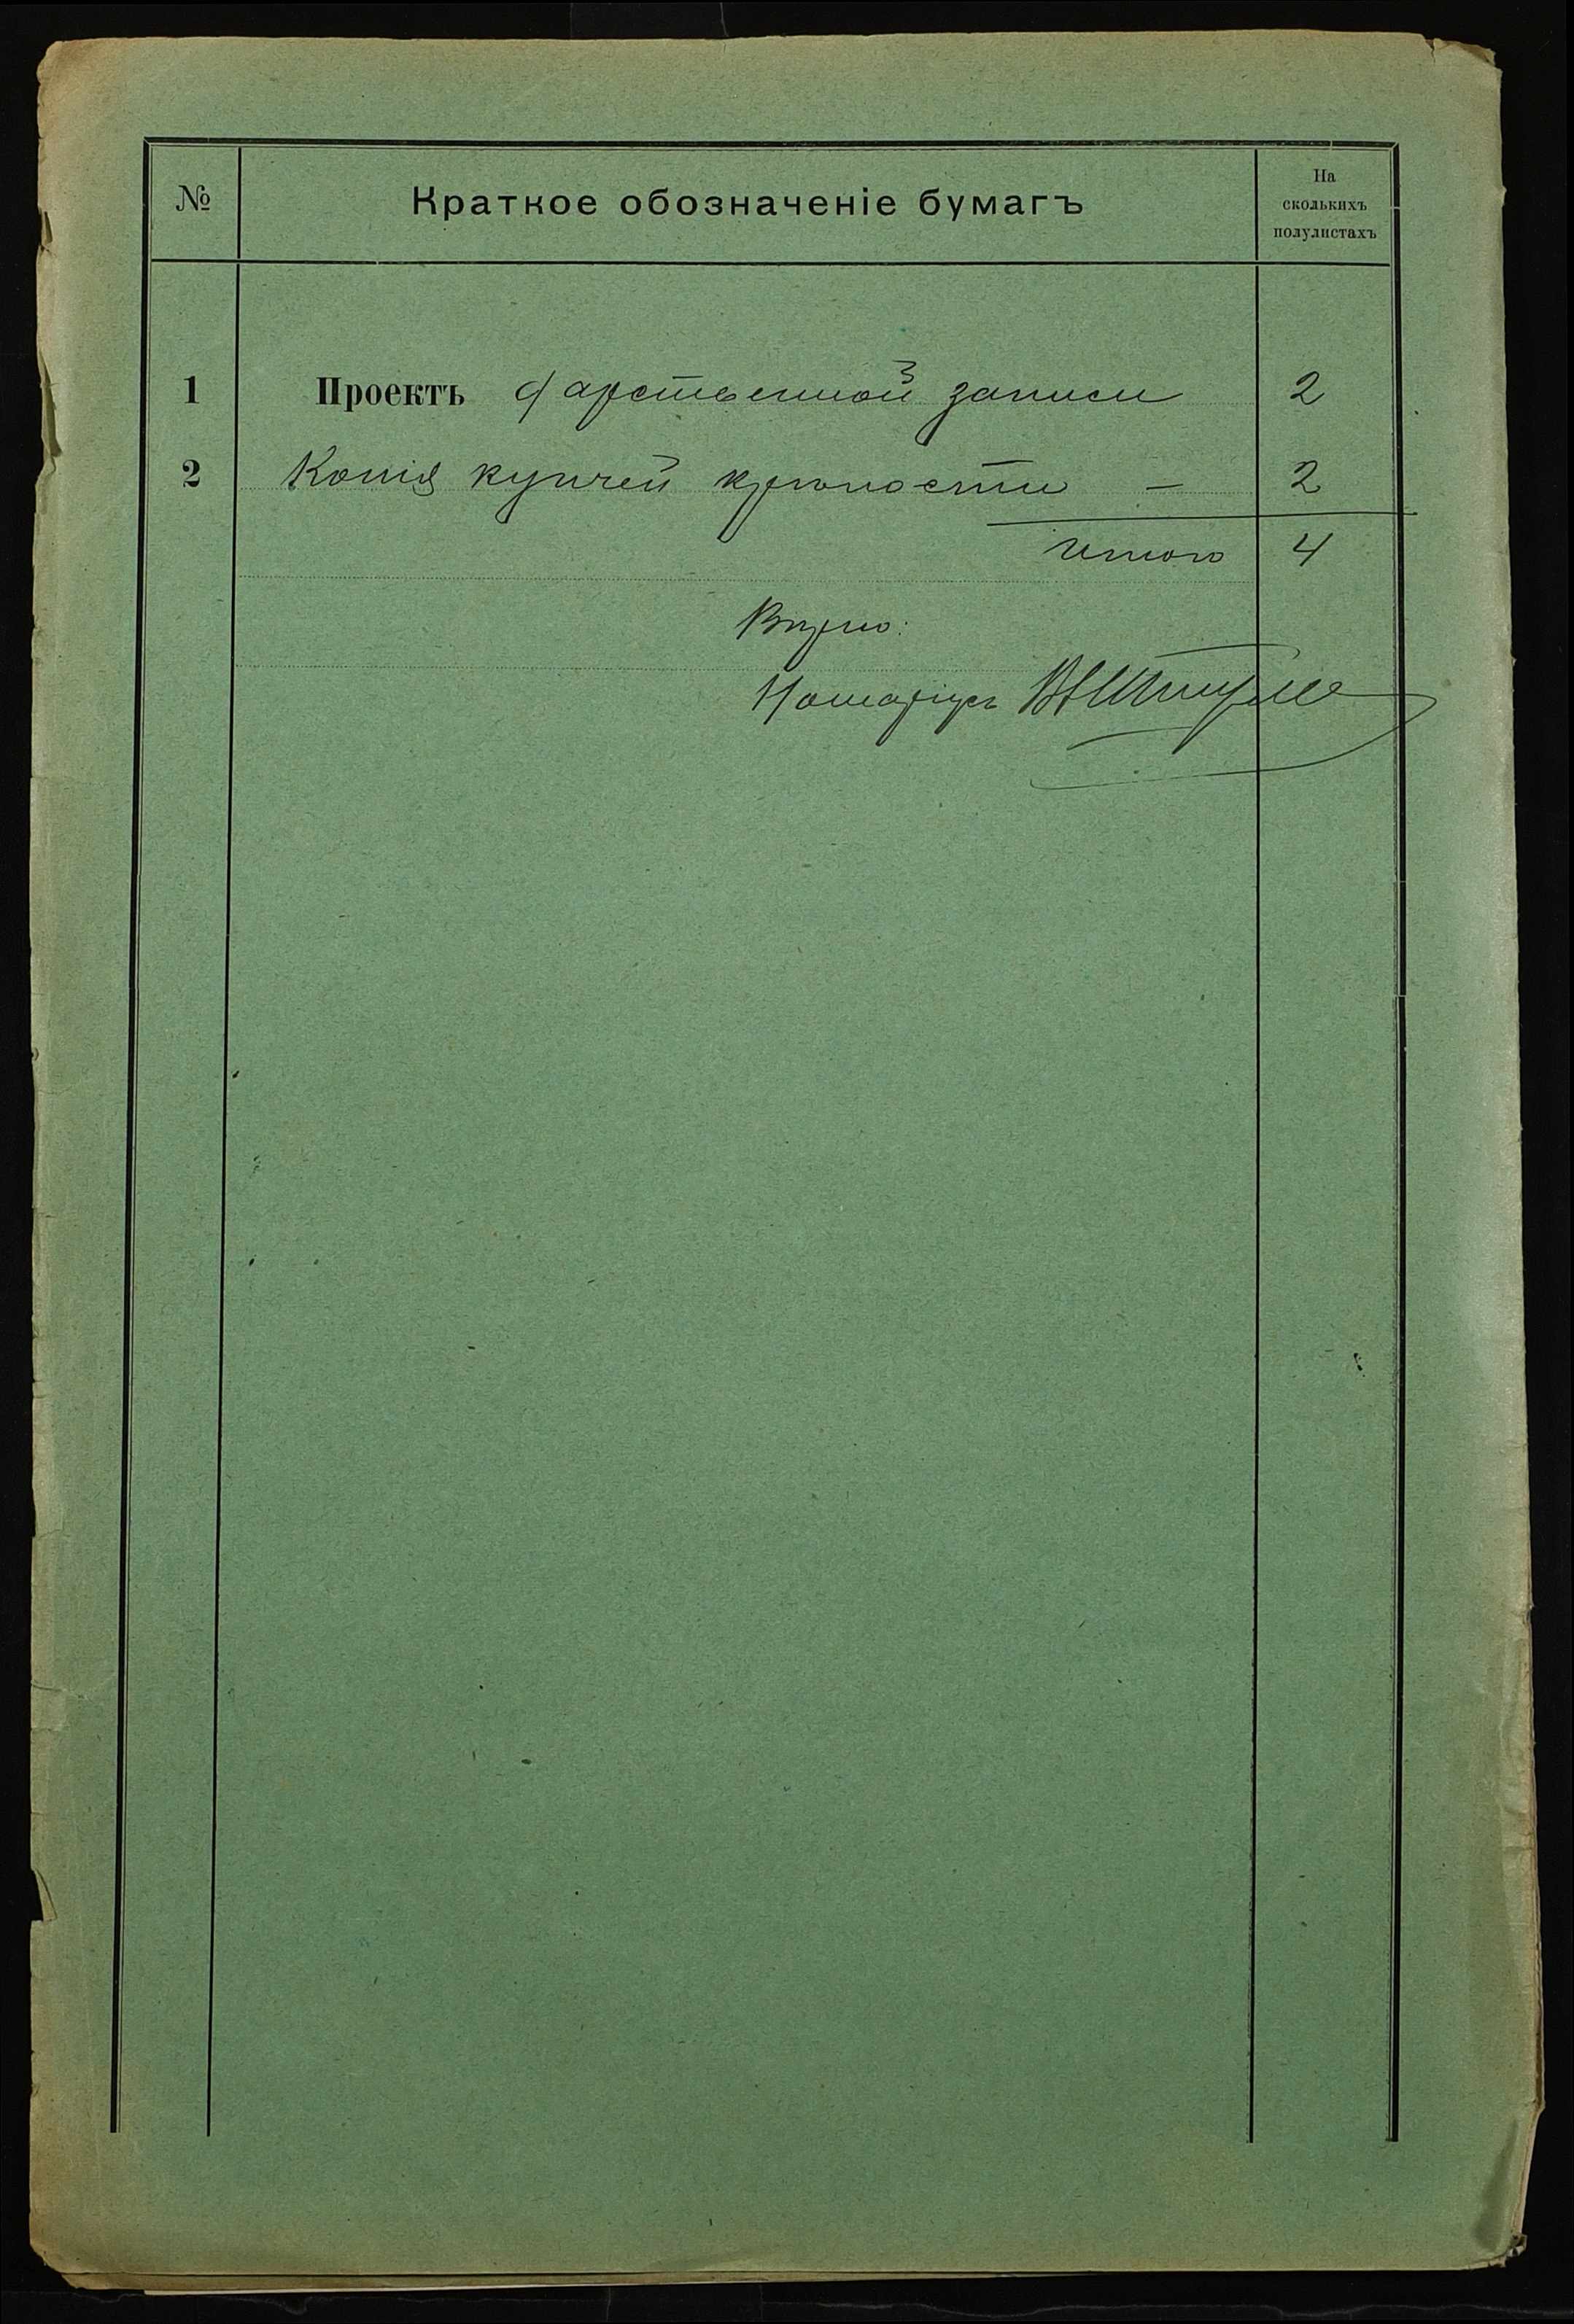 № Краткое обозначеніе бумагъ На
сколькихъ
полулистахъ
1 Проектъ дарственной записи 2
2 Копія купчей крѣпости – 2
Итого 4
Вѣрно:
Нотаріусъ